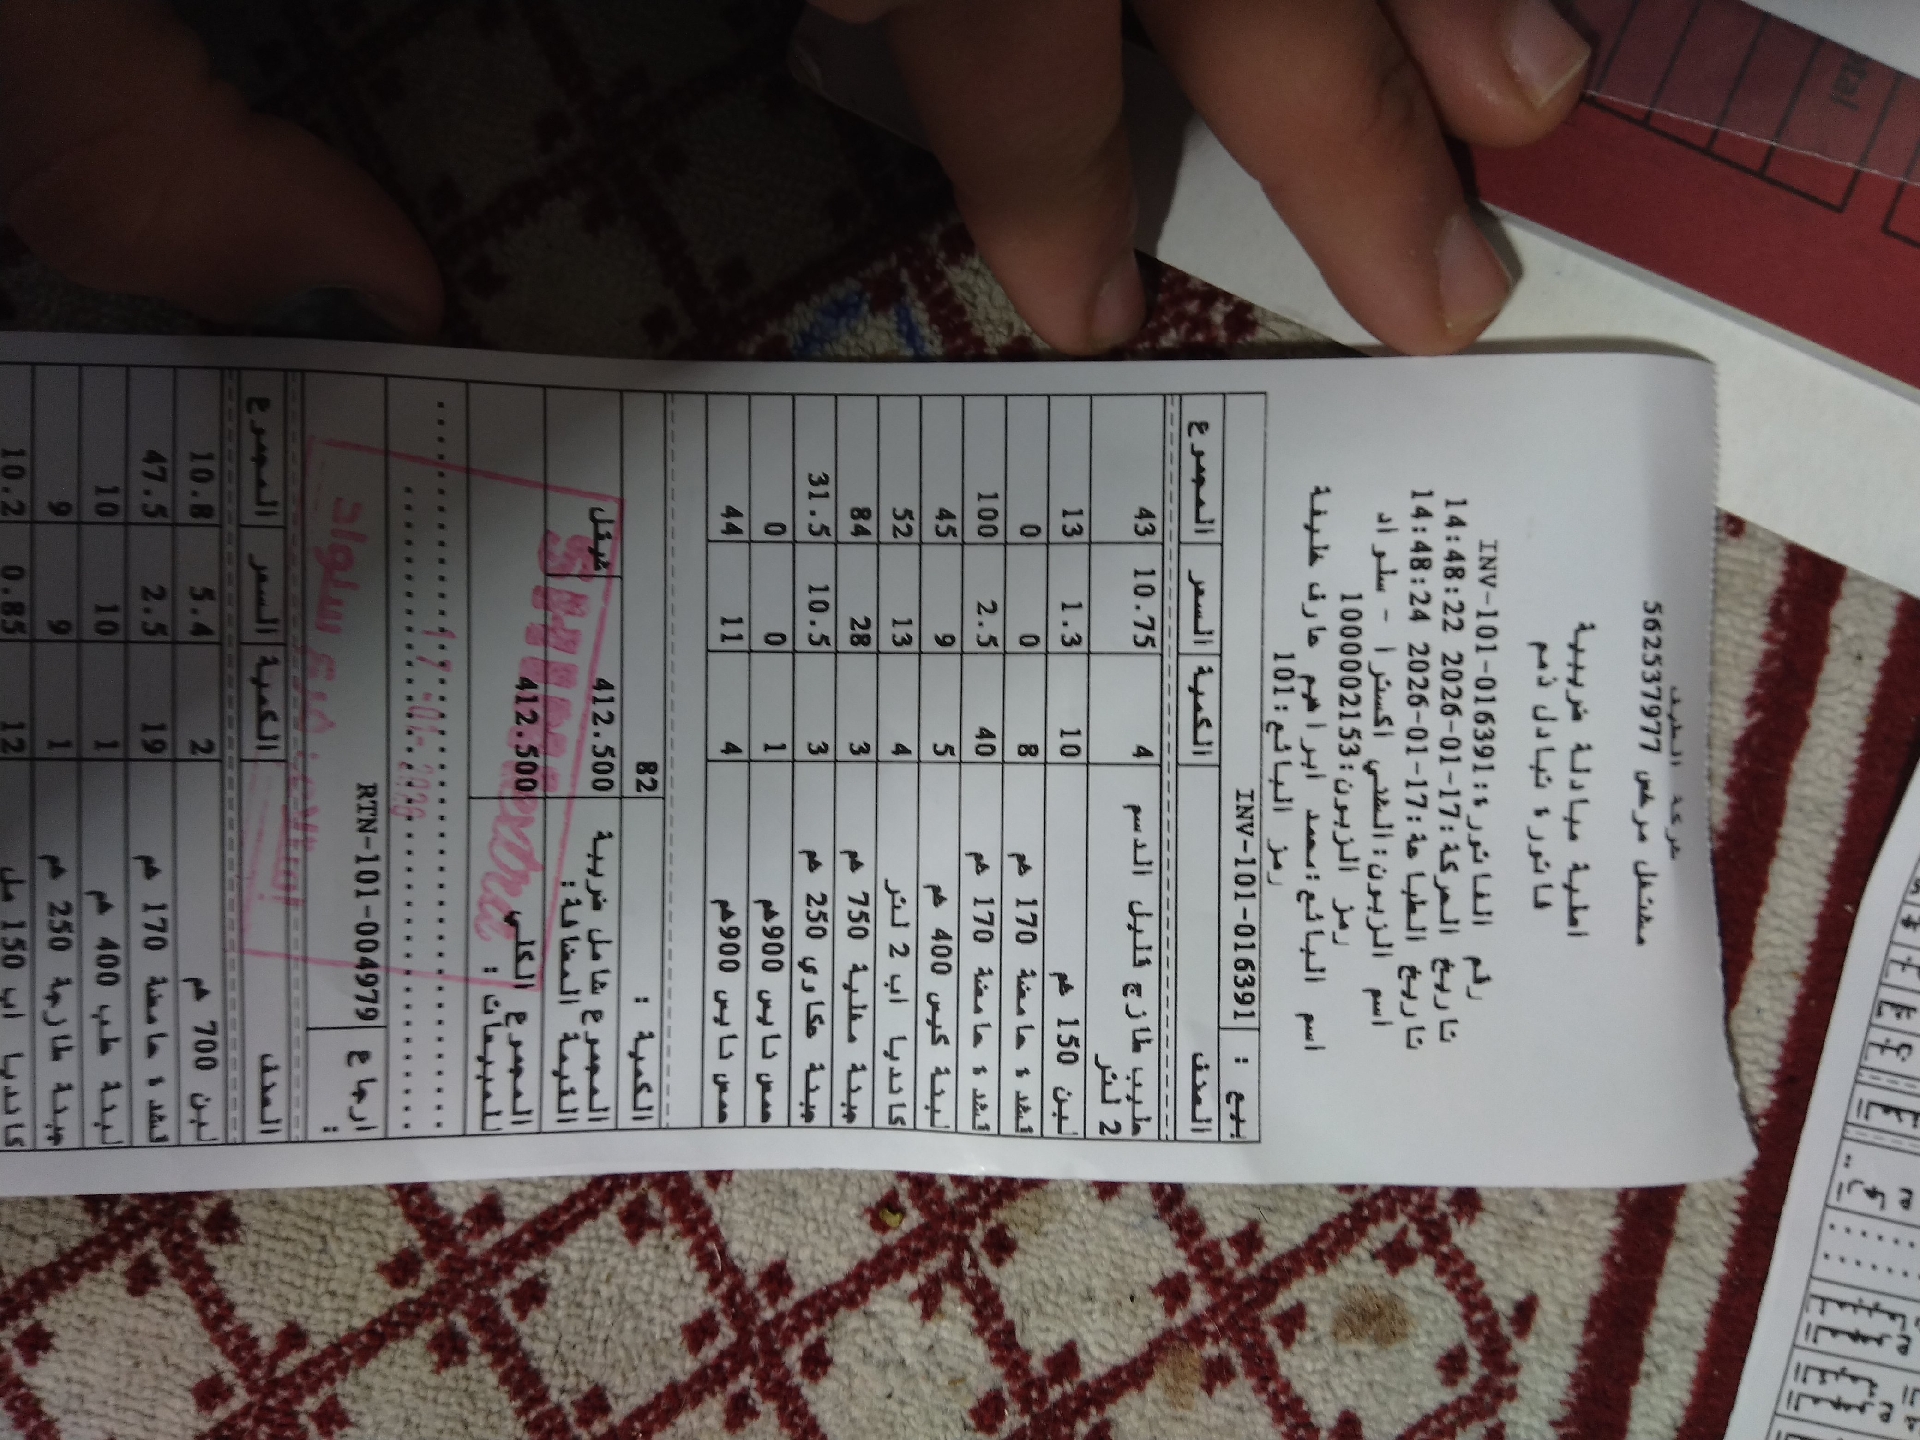 شركة الطيف
مشتغل مرخص 562537977
اصلية مبادلة ضريبية
فاتورة تبادل ذمم
رقم الفاتورة:INV-101-016391
تاريخ الحركة:17-01-2026 14:48:22
تاريخ الطباعة:17-01-2026 14:48:24
اسم الزبون:التقي اكسترا - سلواد
رمز الزبون:1000002153
اسم البائع:محمد ابراهيم عارف خليفة
رمز البائع:101
بيع : INV-101-016391
الصنف الكمية السعر المجموع
حليب طازج قليل الدسم 2 لتر 4 10.75 43
لبن 150 غم 10 1.3 13
قشدة حامضة 170 غم 8 0 0
قشدة حامضة 170 غم 40 2.5 100
لبنة كيس 400 غم 5 9 45
كانديا اب 2 لتر 4 13 52
جبنة مغلية 750 غم 3 28 84
جبنة عكاوي 250 غم 3 10.5 31.5
حمص نايس 900غم 1 0 0
حمص نايس 900غم 4 11 44
الكمية : 82
المجموع شامل ضريبة القيمة المضافة: 412.500 شيقل
المجموع الكلي للمبيعات: 412.500
17-01-2026
ارجاع : RTN-101-004979
فرع سلواد
الصنف الكمية السعر المجموع
لبن 700 غم 2 5.4 10.8
قشدة حامضة 170 غم 19 2.5 47.5
لبنة علب 400 غم 1 10 10
جبنة طازجة 250 غم 1 9 9
كانديا اب 150 مل 12 0.85 10.2